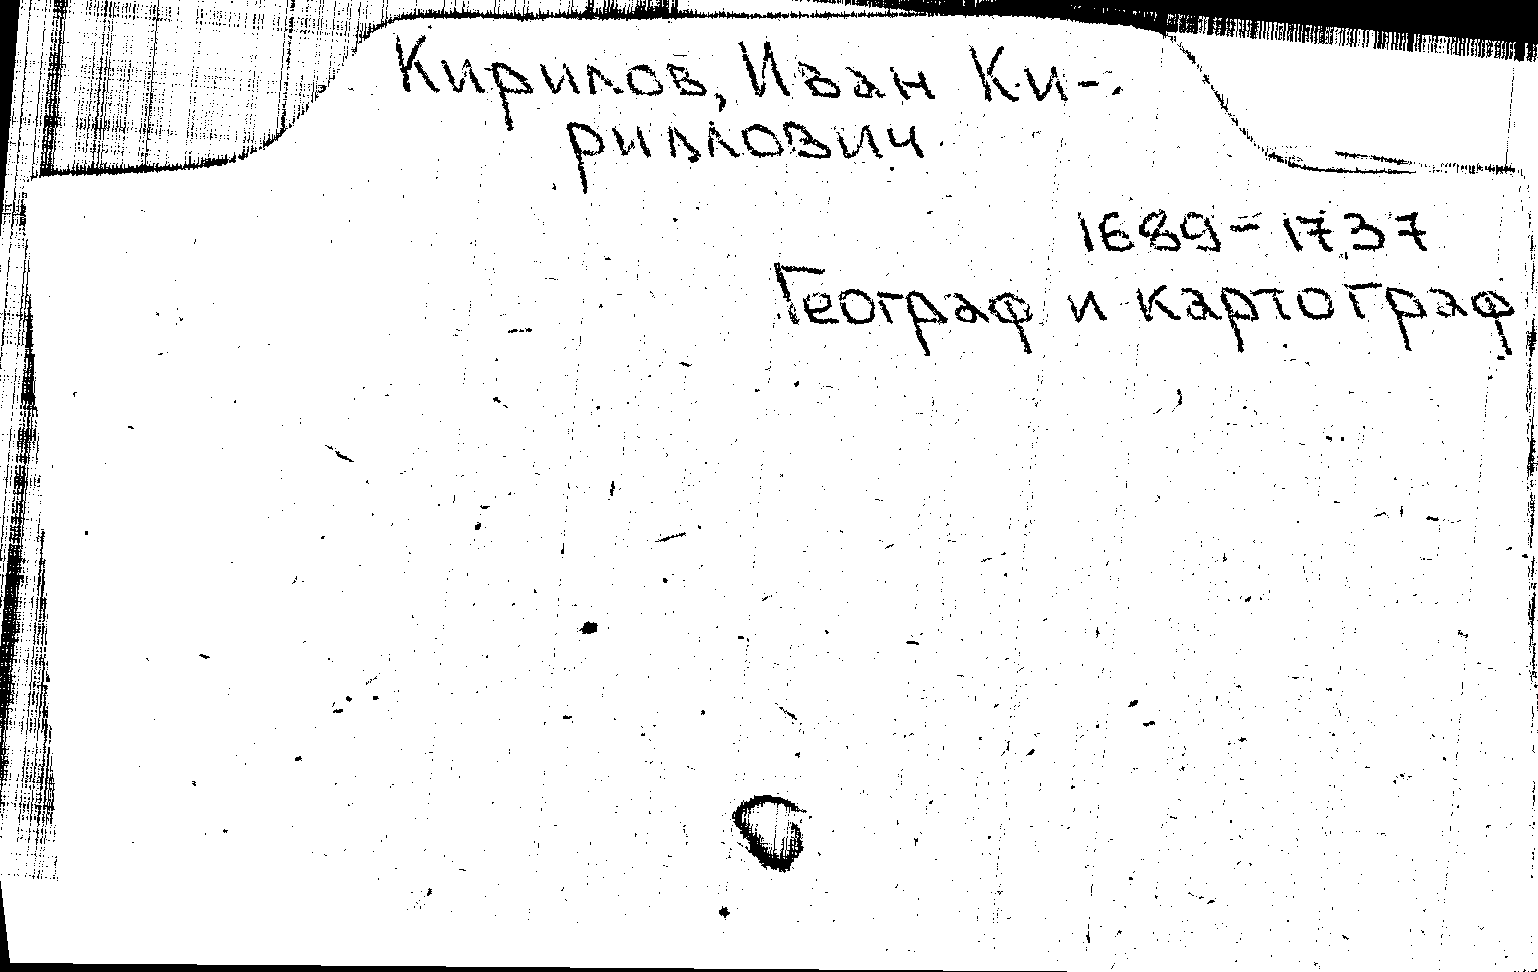 Кирилов, Иван Ки-
риллович
1689-1737
Географ и картограф